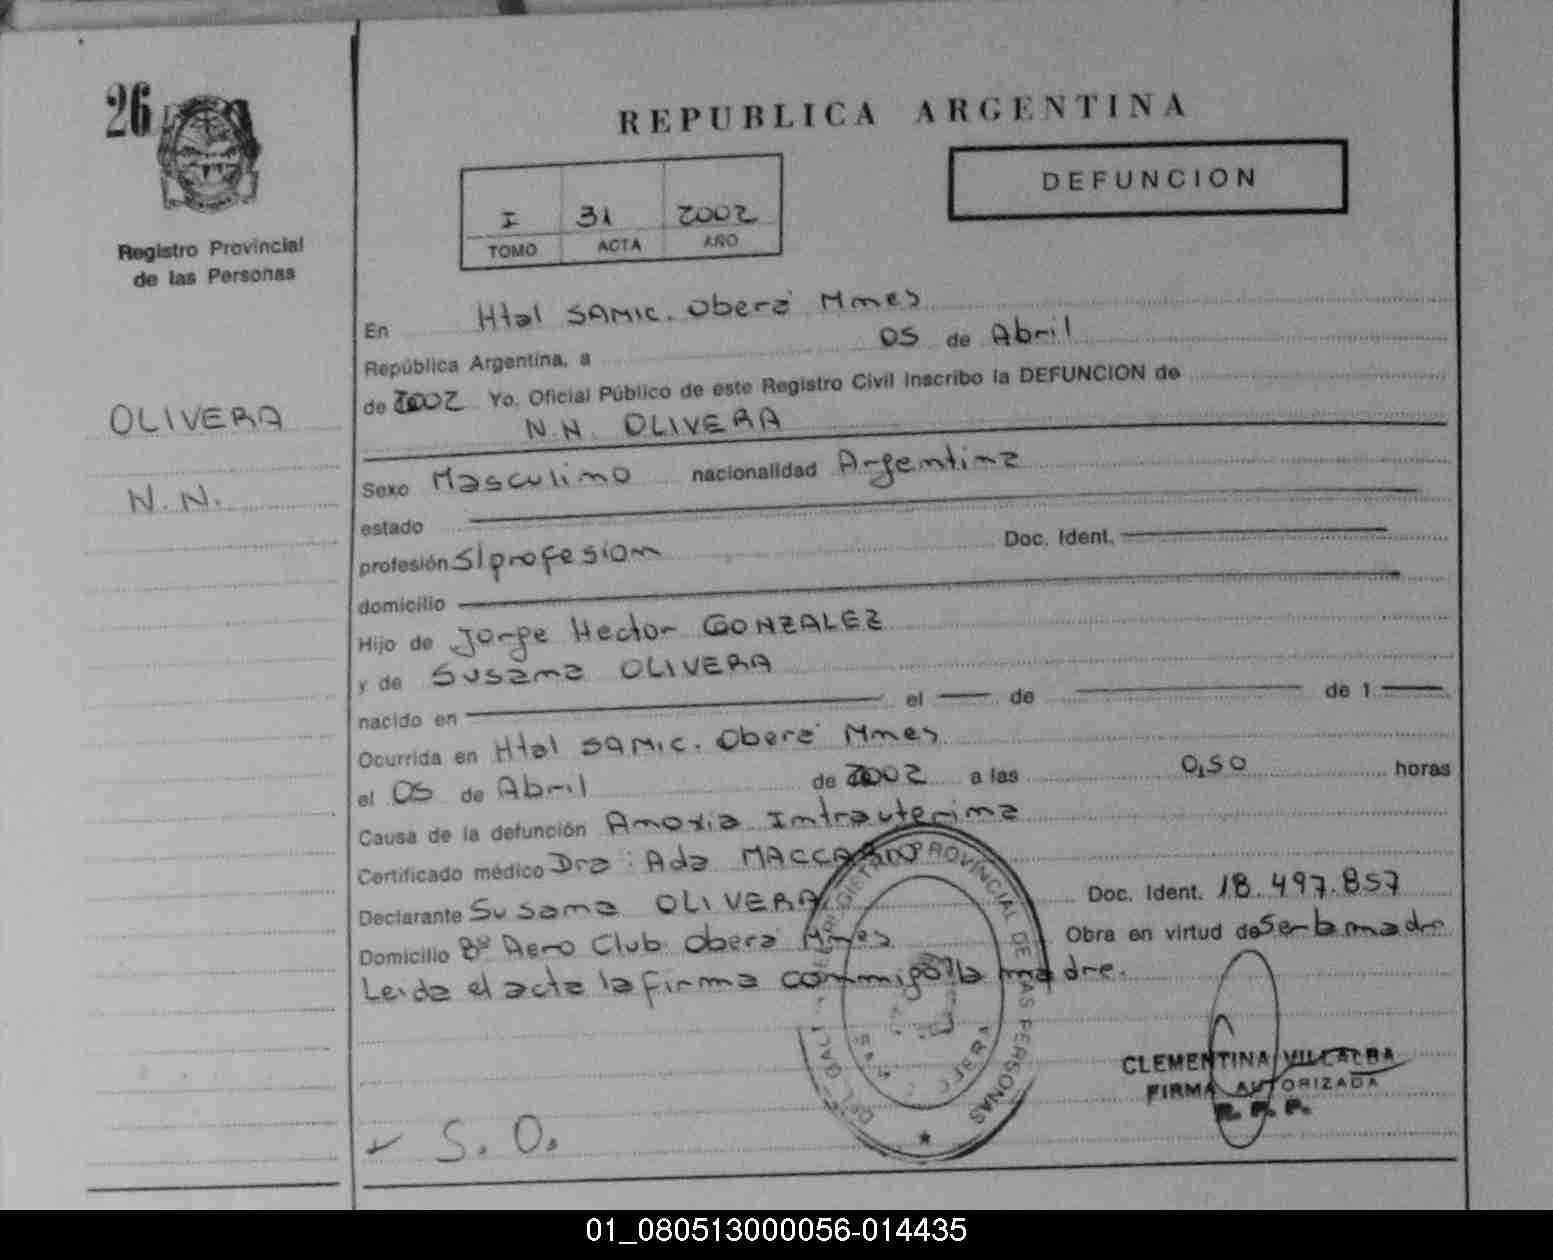 26
Registro Provincial
de las Personas
OLIVERA
N.N.
REPUBLICA ARGENTINA
I 31 2002
TOMO ACTA AÑO
DEFUNCION
En Htal SAMIC. Oberá Mnes
República Argentina, a 05 de Abril
de 2002 Yo, Oficial Público de este Registro Civil Inscribo la DEFUNCION de
N.N. OLIVERA
Sexo Masculino nacionalidad Argentina
estado
profesión S/profesion Doc. Ident.
domicilio
Hijo de Jorge Hector GONZALEZ
y de Susana OLIVERA
nacido en el de de 1
Ocurrida en Htal SAMIC. Oberá Mnes
el 05 de Abril de 2002 a las 0,50 horas
Causa de la defunción Anoxia Intrauterina
Certificado médico Dra: Ada
Declarante Susana OLIVERA Doc. Ident. 18.497.857
Domicilio Bº Aero Club Oberá Mnes Obra en virtud de Ser la madre
Leida el acta la firma conmigo la madre.
PROVINCIAL DE LAS PERSONAS
CLEMENTINA VILLALBA
FIRMA AUTORIZADA
R. P. P.
S. O.
01_080513000056-014435